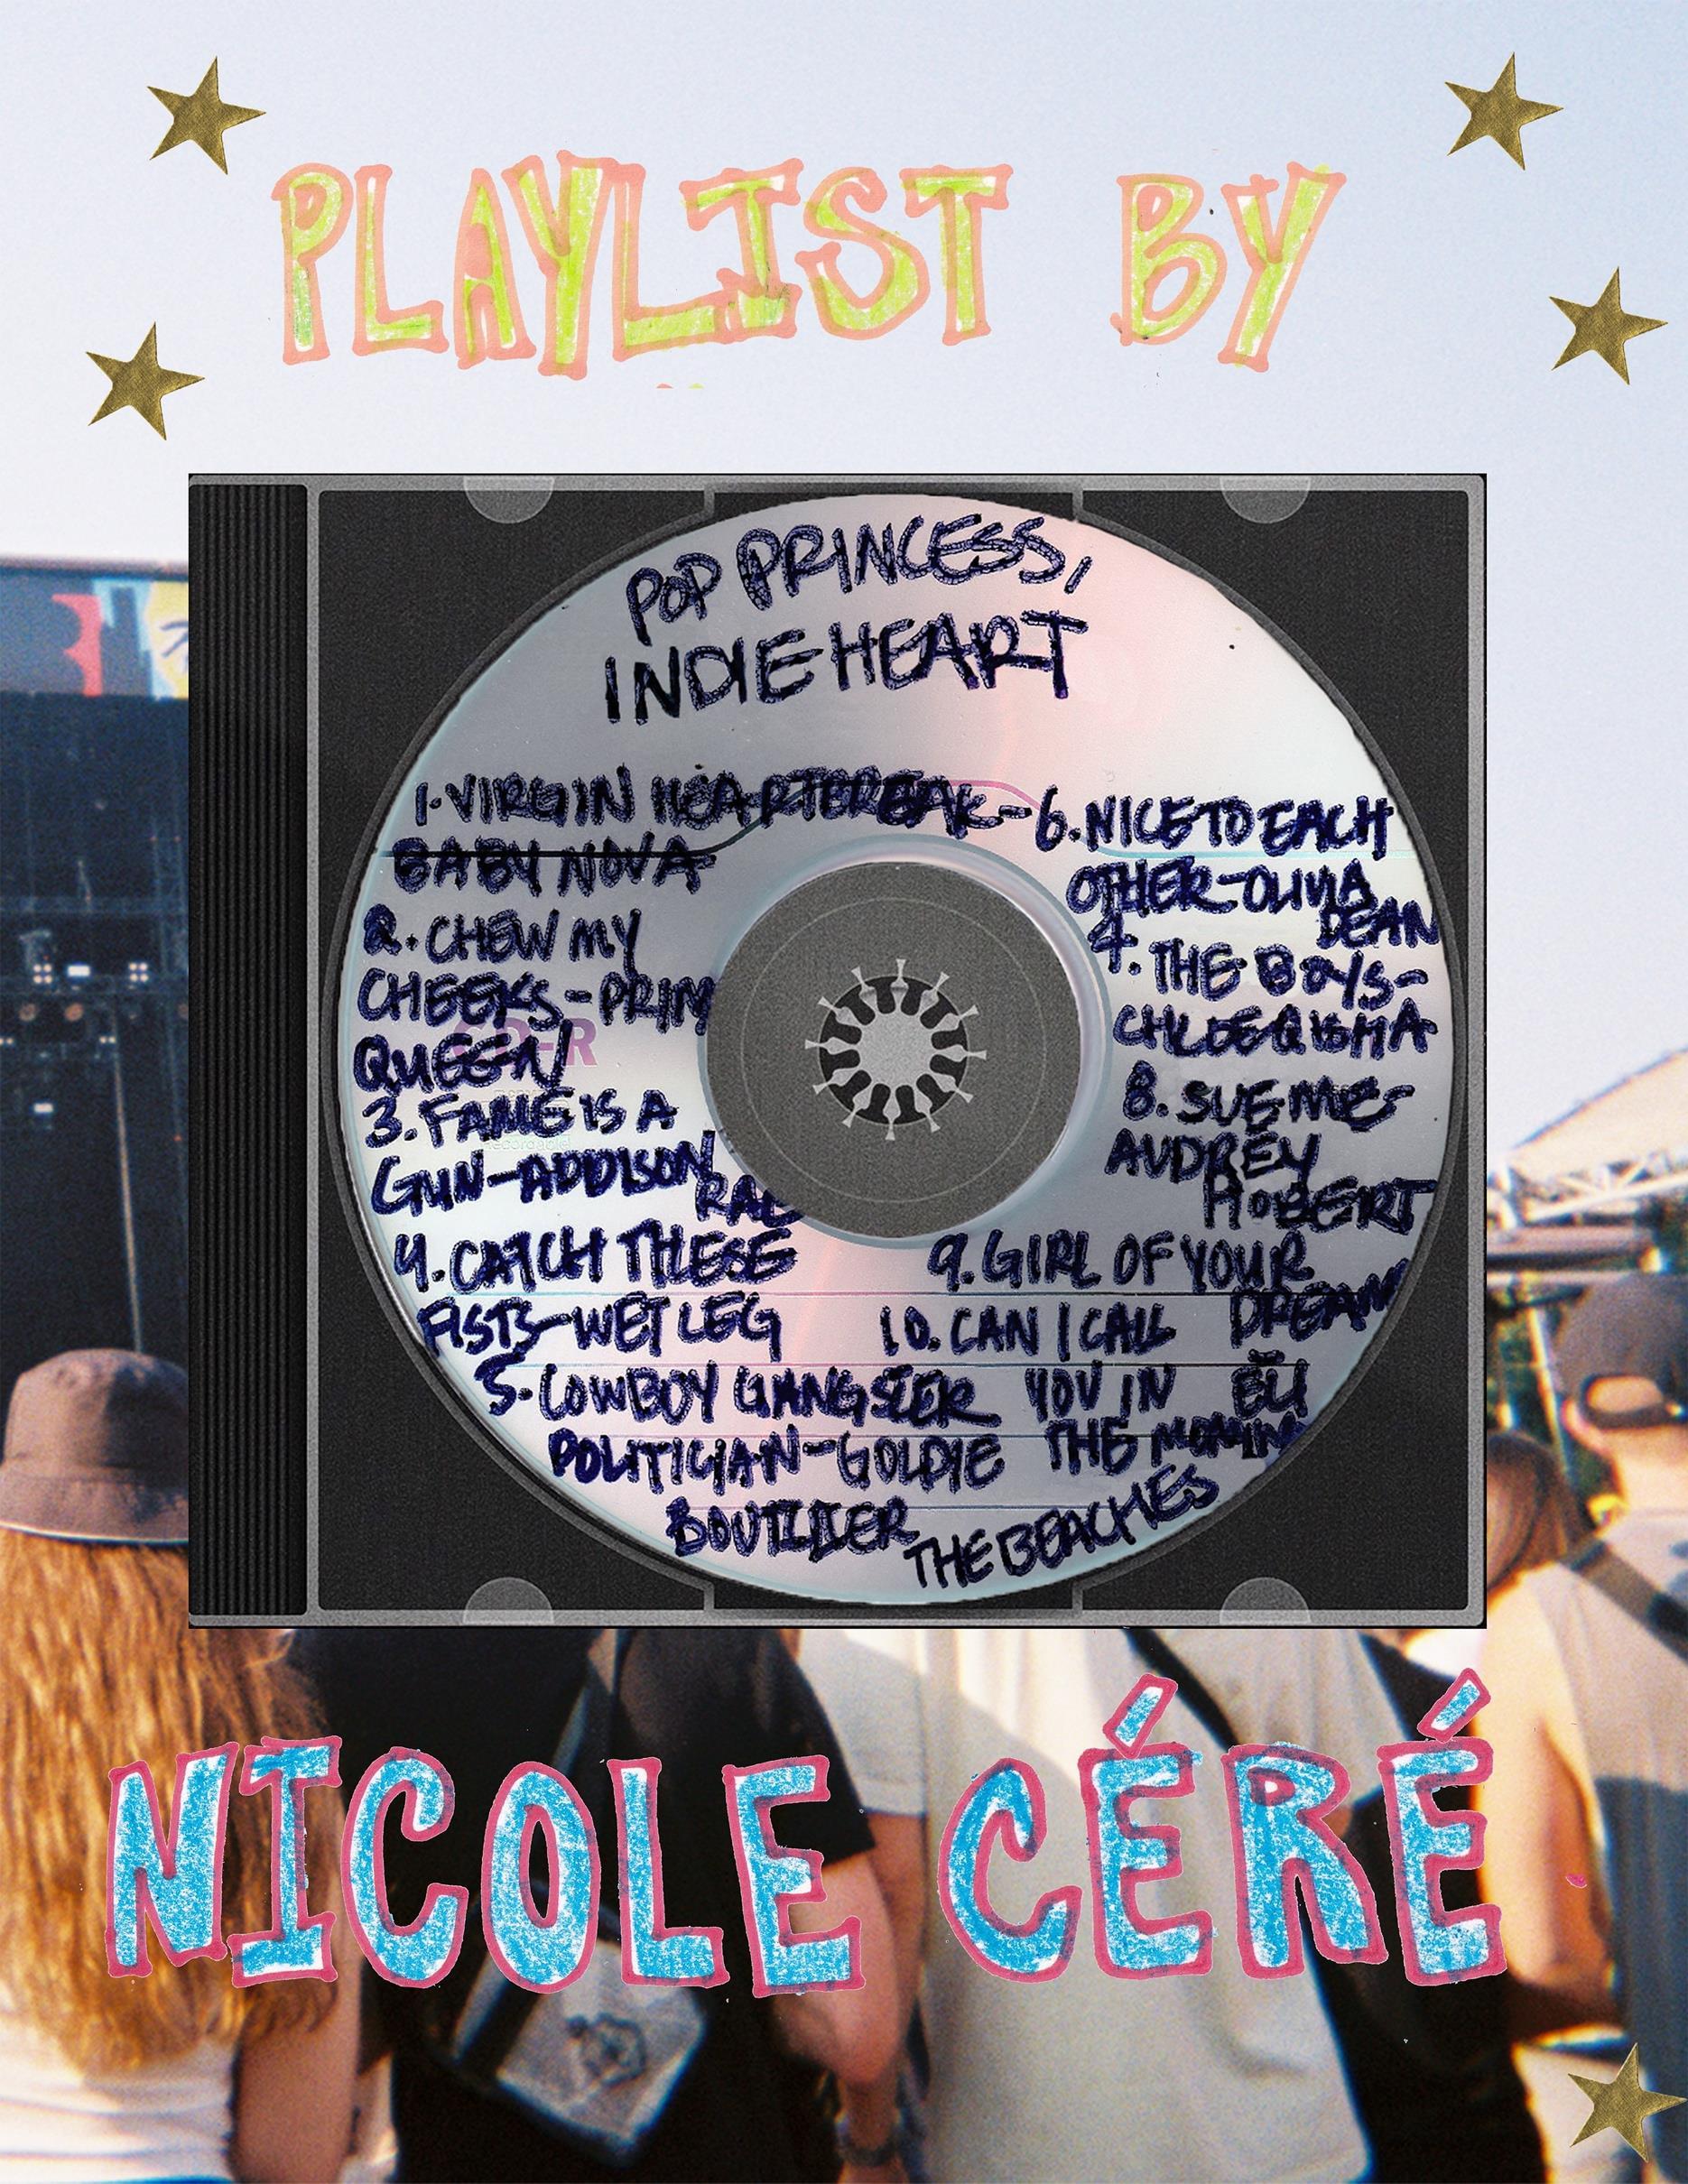 PLAYLIST BY
POP PRINCESS,
INDIE HEART
1. VIRGIN HEARTBREAK -
BABY NOVA
2. CHEW MY
CHEEKS - PRIM
QUEEN
3. FAME IS A
GUN - ADDISON
RAE
4. CATCH THESE
FISTS - WET LEG
5. COWBOY GANGSTER
POLITICIAN - GOLDIE
BOUTILIER
6. NICE TO EACH
OTHER - OLIVIA
DEAN
7. THE BOYS -
CHLOE QISHA
8. SUE ME -
AUDREY
HOBERT
9. GIRL OF YOUR
DREAMS
ELI
10. CAN I CALL
YOU IN
THE MORNING
THE BEACHES
CD-R
NICOLE CÉRÉ